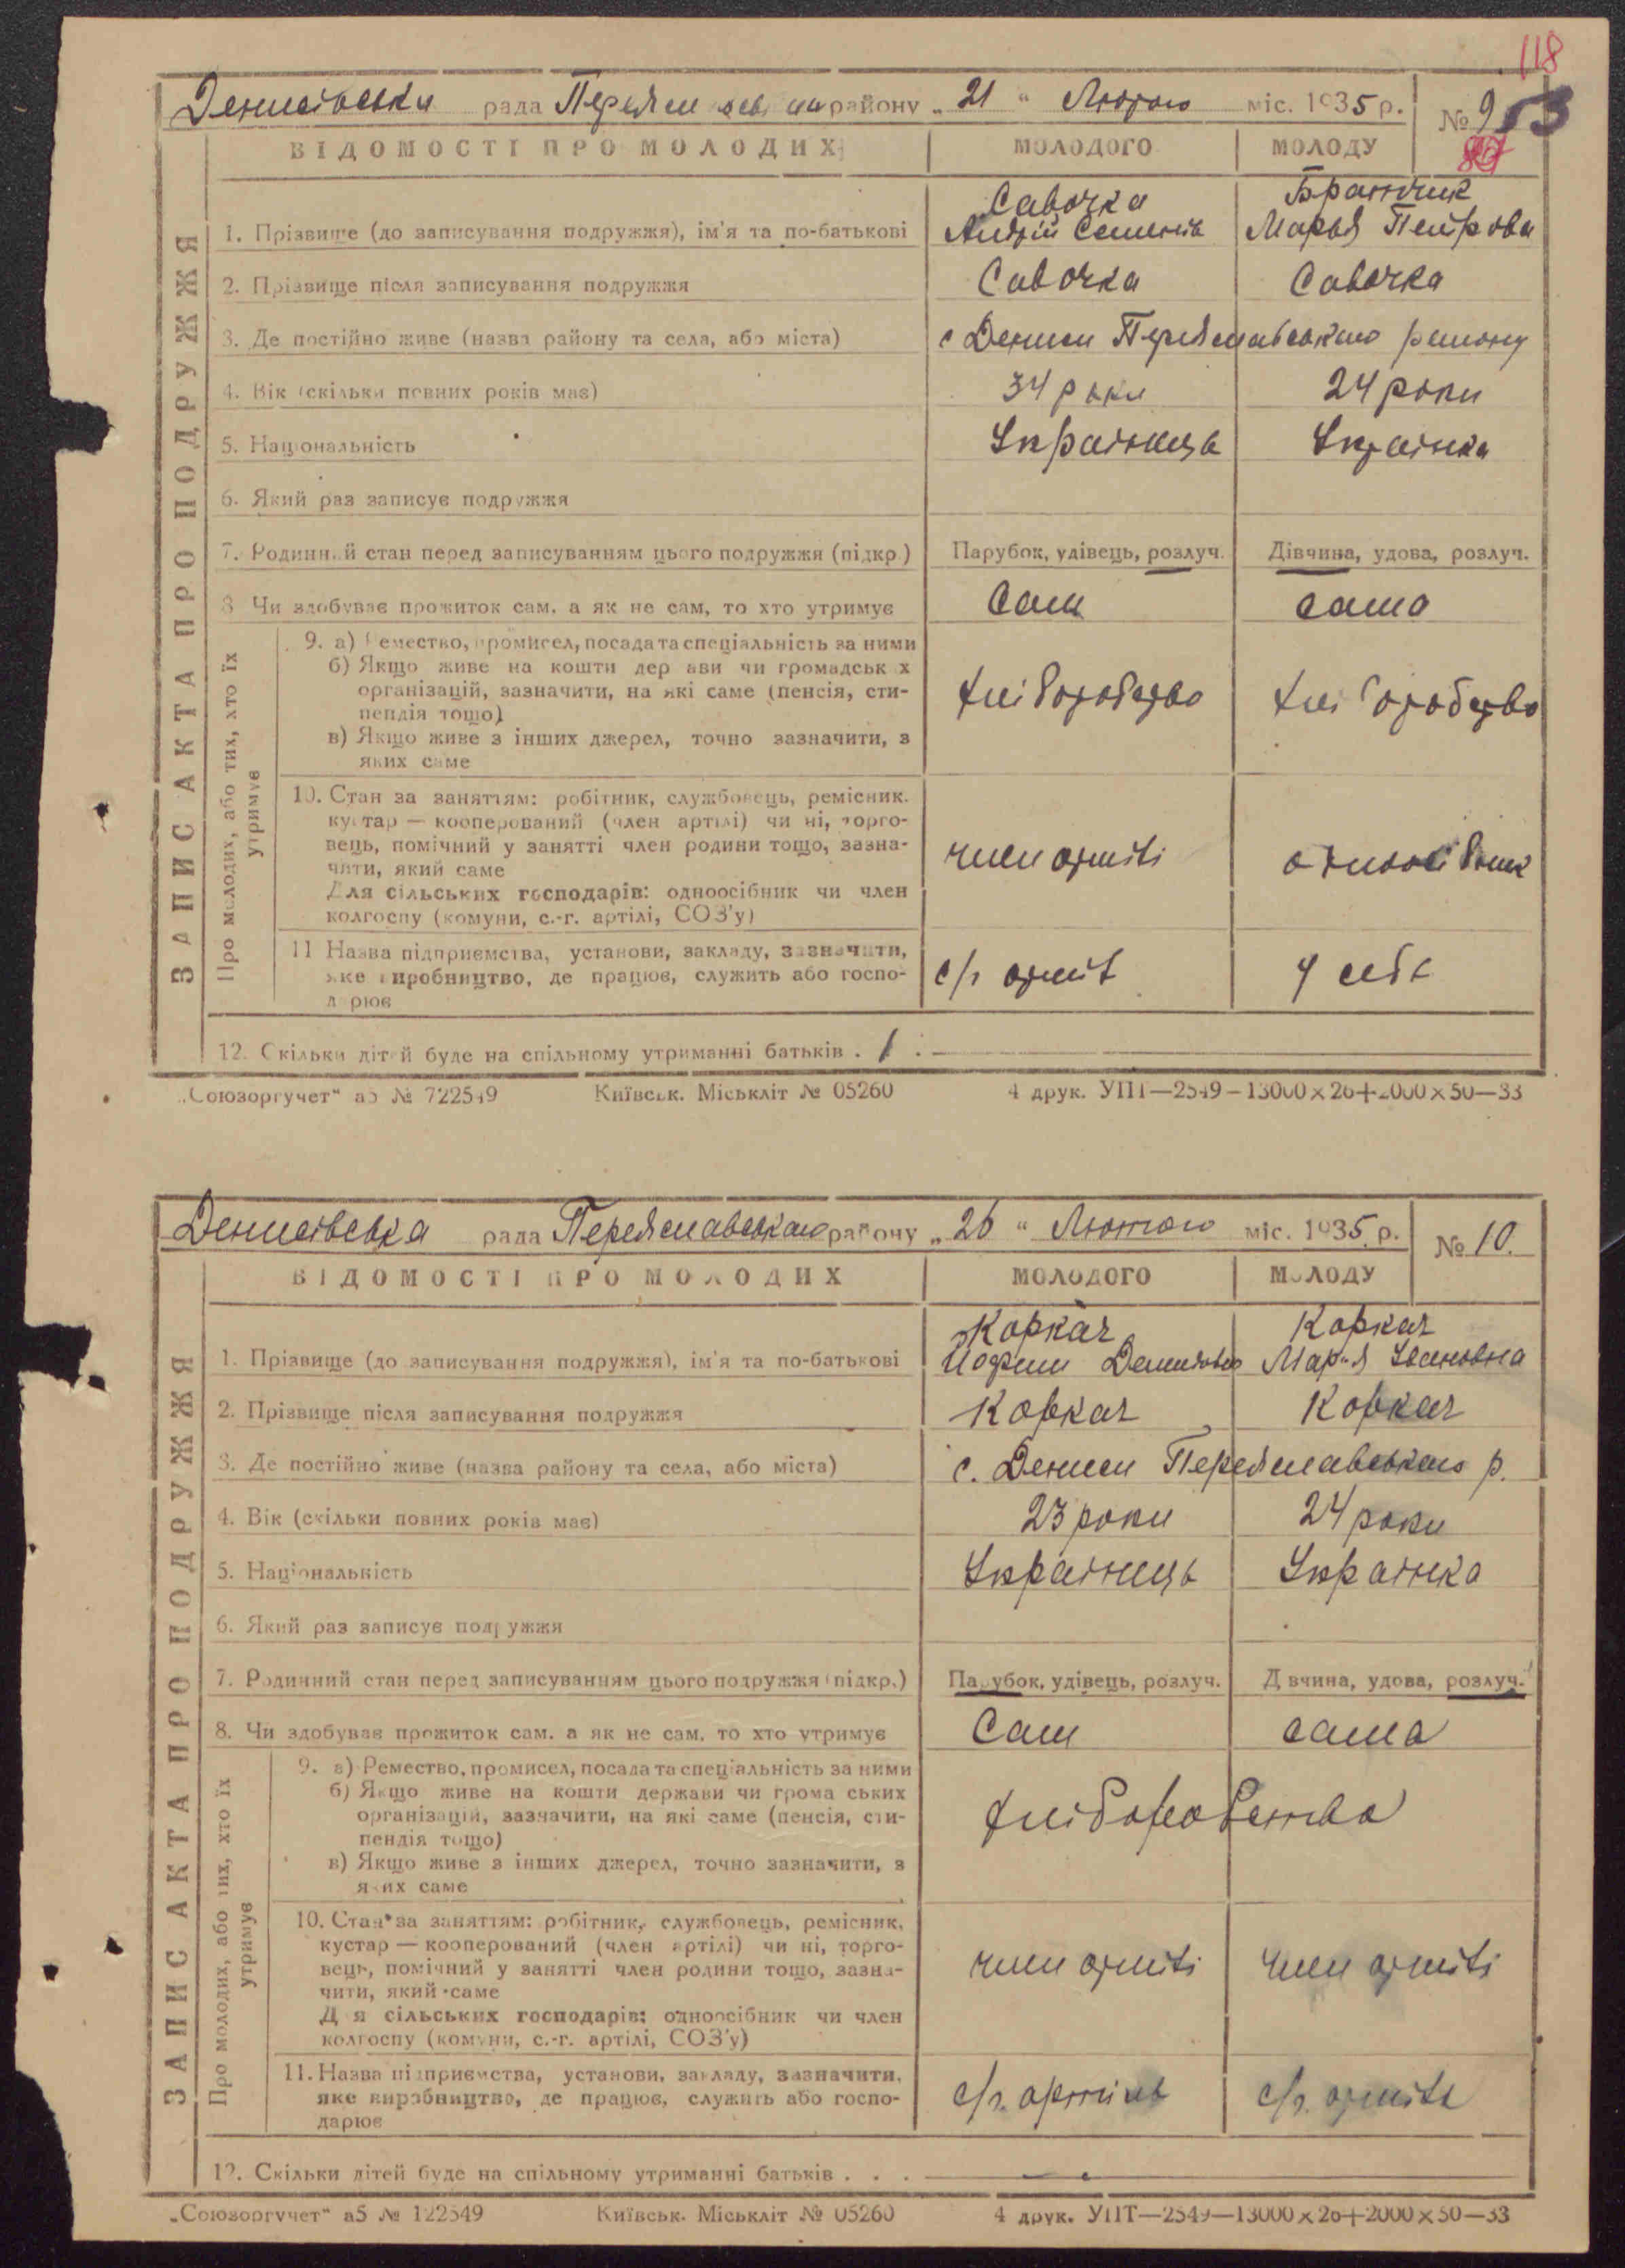 118
Денисівська рада Переяславського району „21" Лютого міс. 1935 р. № 9
53
ВІДОМОСТІ ПРО МОЛОДИХ МОЛОДОГО МОЛОДУ
Савочка Бранчик
1. Прізвище (до записування подружжя), ім'я та по-батькові Андрій Семенів Марья Петрова
2. Прізвище після записування подружжя Савочка Савочка
3. Де постійно живе (назва району та села, або міста) с Дениси Переяславського району
4. Вік (скільки повних років має) 34 роки 24 роки
5. Національність Українець Українка
6. Який раз записує подружжя
7. Родинний стан перед записуванням цього подружжя (підкр.) Парубок, удівець, розлуч. Дівчина, удова, розлуч.
8 Чи здобуває прожиток сам, а як не сам, то хто утримує Сам сама
9. а) Ремество, промисел, посада та спеціальність за ними
б) Якщо живе на кошти держави чи громадських
організацій, зазначити, на які саме (пенсія, сти-
пендія тощо)
в) Якщо живе з інших джерел, точно зазначити, з
яких саме
хліборобство хліборобство
10. Стан за заняттям: робітник, службовець, ремісник.
кустар — кооперований (член артілі) чи ні, торго-
вець, помічний у занятті член родини тощо, зазна-
чити, який саме
Для сільських господарів: одноосібник чи член
колгоспу (комуни, с.-г. артілі, СОЗ'у)
член артілі одноосібник
11 Назва підприємства, установи, закладу, зазначити,
яке виробництво, де працює, служить або госпо-
дарює
с/г артіль у себе
12. Скільки дітей буде на спільному утриманні батьків . 1 .
ЗАПИС АКТА ПРО ПОДРУЖЖЯ
Про молодих, або тих, хто їх
утримує
„Союзоргучет" а5 № 722549 Київськ. Міськліт № 05260 4 друк. УПТ—2549—13000×26+2000×50—33
Денисівська рада Переяславського району „26" Лютого міс. 1935 р. № 10.
ВІДОМОСТІ ПРО МОЛОДИХ МОЛОДОГО МОЛОДУ
Коркач Коркач
1. Прізвище (до записування подружжя), ім'я та по-батькові Марья Івановна
2. Прізвище після записування подружжя Коркач Коркач
3. Де постійно живе (назва району та села, або міста) с. Дениси Переяславського р.
4. Вік (скільки повних років має) 23 роки 24 роки
5. Національність Українець Українка
6. Який раз записує подружжя
7. Родинний стан перед записуванням цього подружжя (підкр.) Парубок, удівець, розлуч. Дівчина, удова, розлуч.
8. Чи здобуває прожиток сам, а як не сам, то хто утримує Сам сама
9. а) Ремество, промисел, посада та спеціальність за ними
б) Якщо живе на кошти держави чи громадських
організацій, зазначити, на які саме (пенсія, сти-
пендія тощо)
в) Якщо живе з інших джерел, точно зазначити, з
яких саме
хліборобство
10. Стан за заняттям: робітник, службовець, ремісник,
кустар — кооперований (член артілі) чи ні, торго-
вець, помічний у занятті член родини тощо, зазна-
чити, який саме
Для сільських господарів: одноосібник чи член
колгоспу (комуни, с.-г. артілі, СОЗ'у)
член артілі член артілі
11. Назва підприємства, установи, закладу, зазначити,
яке виробництво, де працює, служить або госпо-
дарює
с/г. артіль с/г. артіль
12. Скільки дітей буде на спільному утриманні батьків . . .
ЗАПИС АКТА ПРО ПОДРУЖЖЯ
Про молодих, або тих, хто їх
утримує
„Союзоргучет" а5 № 122549 Київськ. Міськліт № 05260 4 друк. УПТ—2549—13000×26+2000×50—33